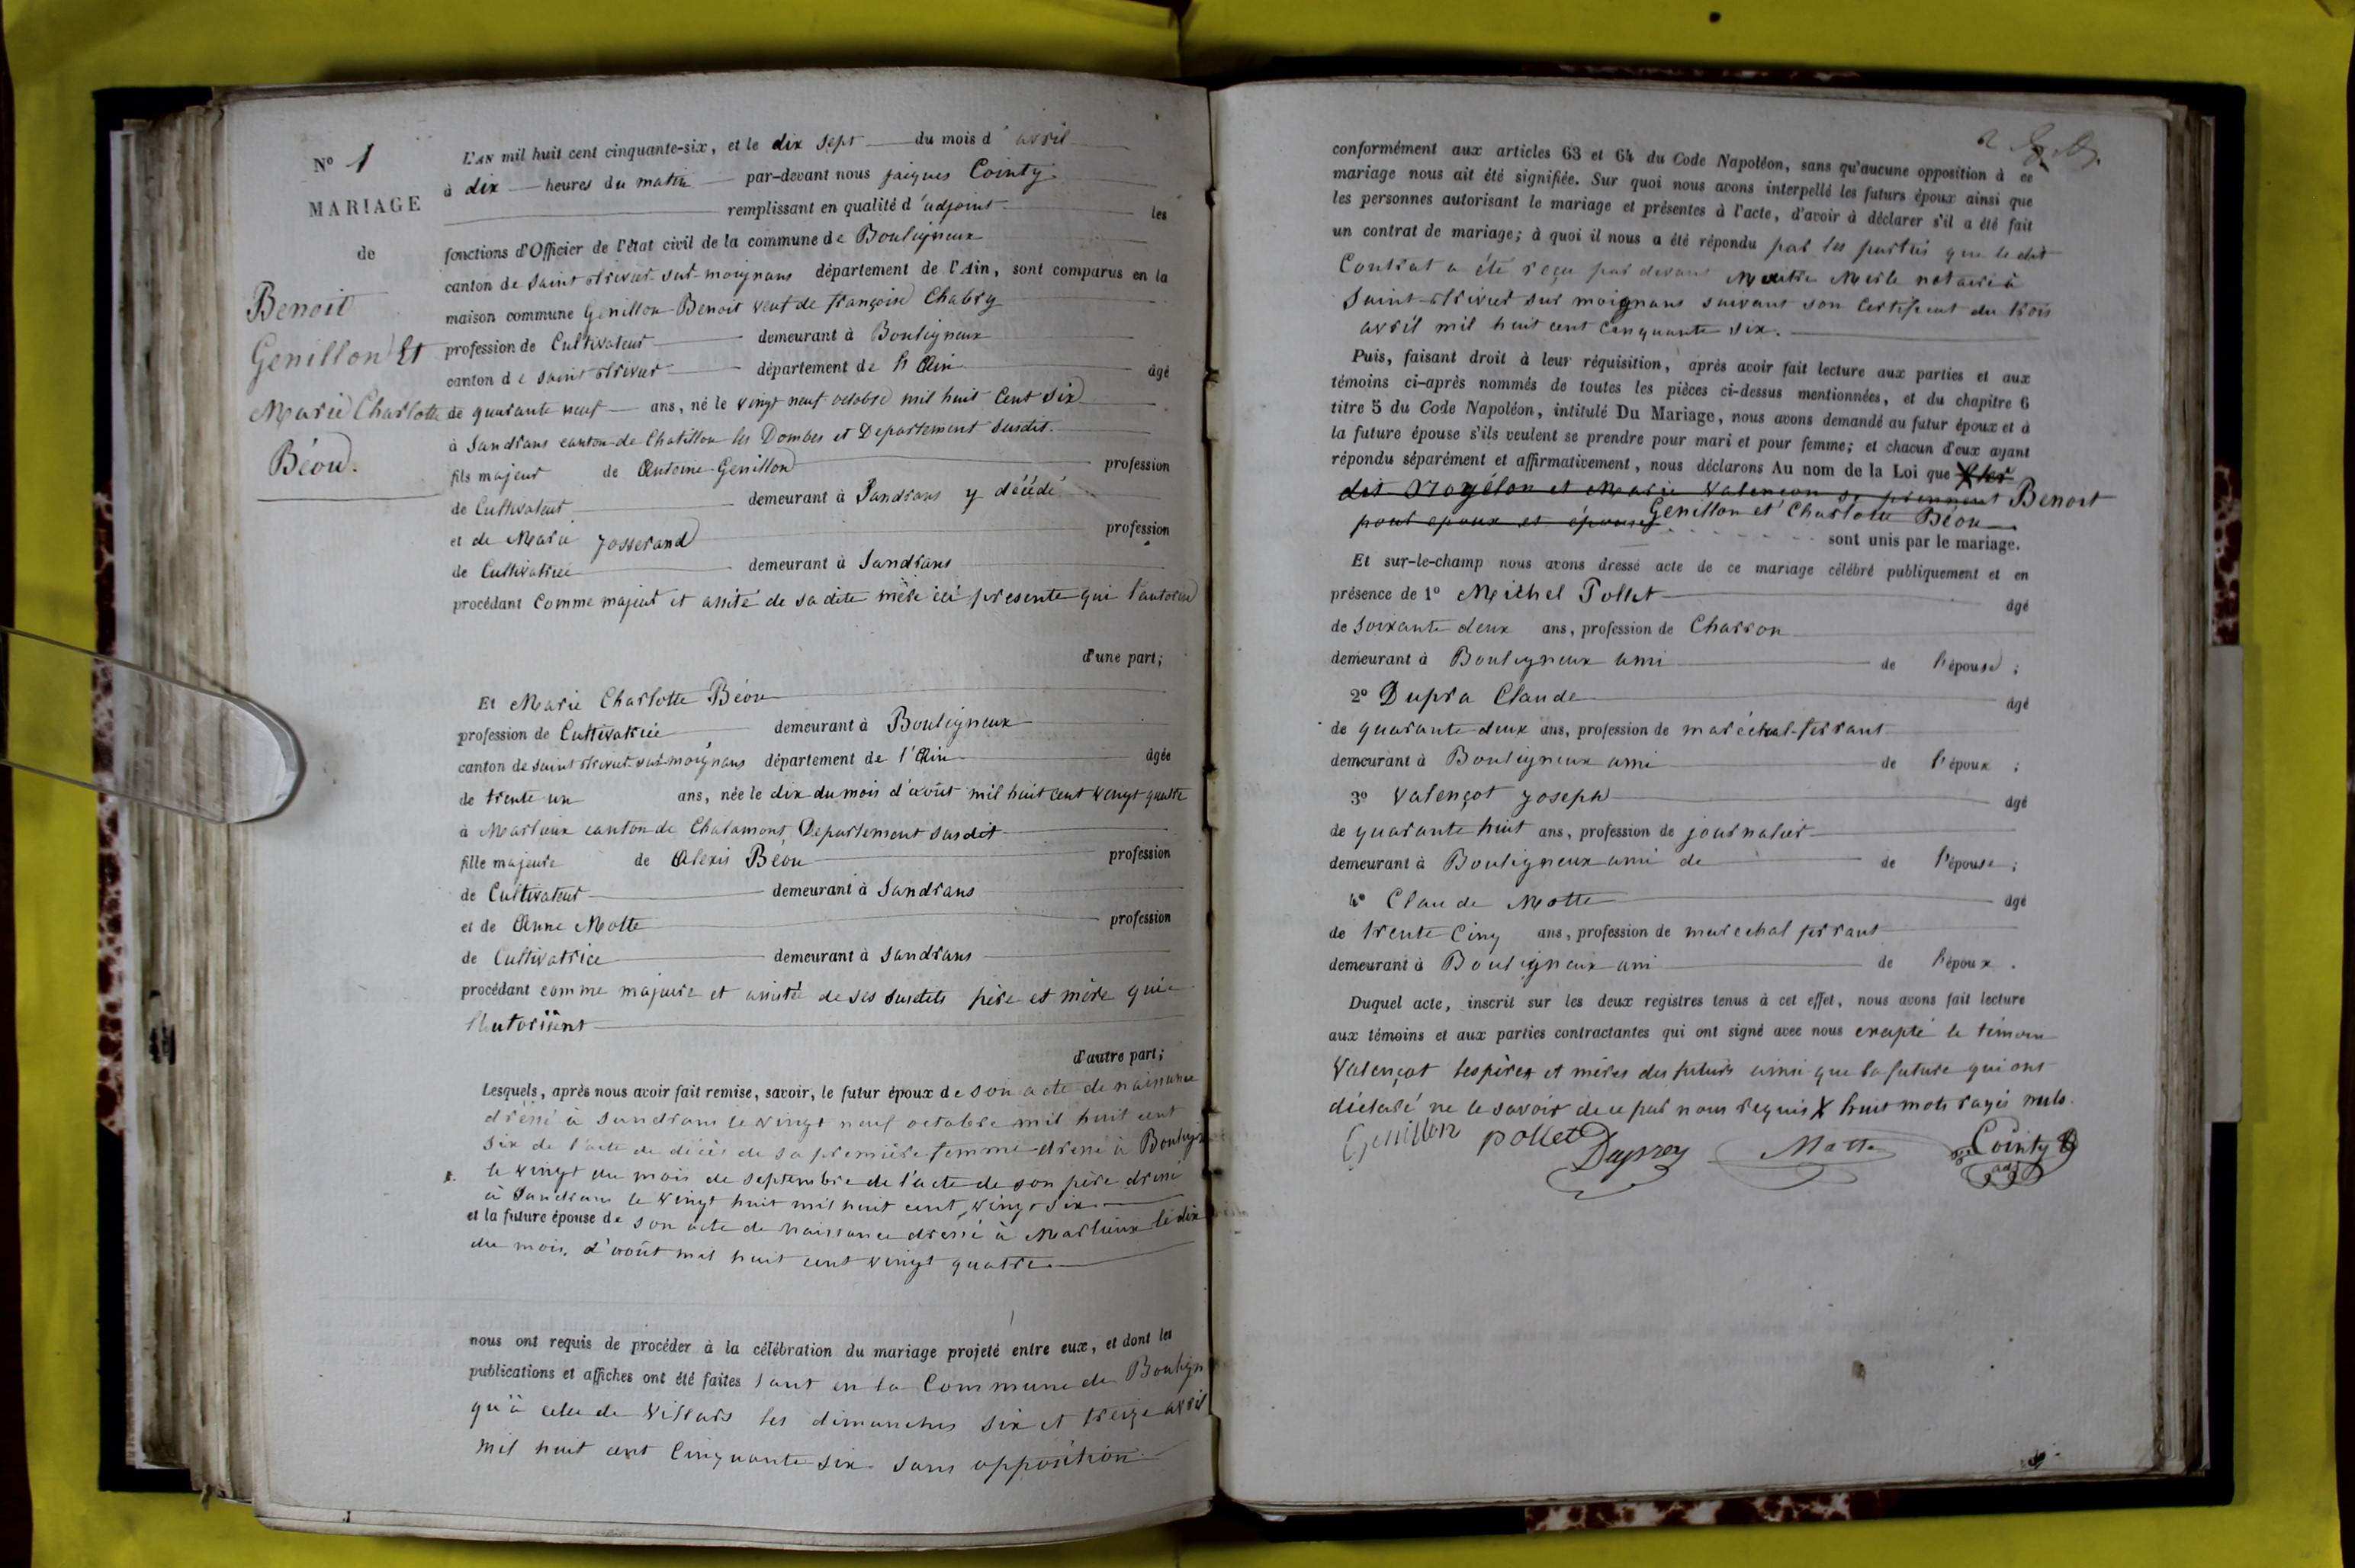 N° 1
MARIAGE
de
Benoit
Genillon Et
Marie Charlotte
Béou.
L'AN mil huit cent cinquante-six, et le dix sept du mois d'avril
à dix heures du matin par-devant nous jacques Cointy
remplissant en qualité d'adjoint les
fonctions d'Officier de l'état civil de la commune de Bouligneux
canton de Saint trivier sur-moignans département de l'Ain, sont comparus en la
maison commune Genillon Benoit veuf de françoise Chabry
profession de Cultivateur demeurant à Bouligneux
canton de Saint trivier département de l'Ain âgé
de quarante neuf ans, né le vingt neuf octobre mil huit Cent Six
à Sandrans canton de Chatillon les Dombes et Departement Susdit.
fils majeur de Antoine Genillon profession
de Cultivateur demeurant à Sandrans y décédé
et de Marie Josserand profession
de Cultivatrice demeurant à Sandrans
procédant Comme majeur et assité de sa dite mère ici presente qui l'autorise
d'une part;
Et Marie Charlotte Béou
profession de Cultivatrice demeurant à Bouligneux
canton de Saint trivier-sur-moignans département de l'Ain âgée
de trente un ans, née le dix du mois d'août mil huit cent vingt quatre
à Marlieux canton de Chalamont Departement susdit
fille majeure de Alexis Béou profession
de Cultivateur demeurant à Sandrans
et de Anne Motte profession
de Cultivatrice demeurant à Sandrans
procédant comme majeure et assistée de ses susdits père et mère qui
l'Autorisent
d'autre part;
Lesquels, après nous avoir fait remise, savoir, le futur époux de son acte de naissance
dressé à Sandrans le vingt neuf octobre mil huit cent
six de l'acte de décès de sa première femme dressé à Boulign
le vingt du mois de septembre de l'acte de son père dressé
à Sandrans le vingt huit mil huit cent vingt six
et la future épouse de son acte de naissance dressé à Marlieux le dix
du mois d'août mil huit cent vingt quatre
nous ont requis de procéder à la célébration du mariage projeté entre eux, et dont les
publications et affiches ont été faites tant en la Commune de Boulign
qu'à celle de Villars les dimanches six et treize avril
mil huit cent Cinquante six sans opposition
conformément aux articles 63 et 64 du Code Napoléon, sans qu'aucune opposition à ce
mariage nous ait été signifiée. Sur quoi nous avons interpellé les futurs époux ainsi que
les personnes autorisant le mariage et présentes à l'acte, d'avoir à déclarer s'il a été fait
un contrat de mariage; à quoi il nous a été répondu par les parties que le dit
Contrat a été reçu par devant Maitre Merle notaire à
Saint-trivier sur moignans suivant son Certificat du trois
avril mil huit cent cinquante six.
Puis, faisant droit à leur réquisition, après avoir fait lecture aux parties et aux
témoins ci-après nommés de toutes les pièces ci-dessus mentionnées, et du chapitre 6
titre 5 du Code Napoléon, intitulé Du Mariage, nous avons demandé au futur époux et à
la future épouse s'ils veulent se prendre pour mari et pour femme; et chacun d'eux ayant
répondu séparément et affirmativement, nous déclarons Au nom de la Loi que X les
dit et Marie Valençon se prennent Benoit
pour epoux et épouse Genillon et Charlotte Béou
sont unis par le mariage.
Et sur-le-champ nous avons dressé acte de ce mariage célébré publiquement et en
présence de 1° Michel Pollet âgé
de Soixante deux ans, profession de Charron
demeurant à Bouligneux ami de l'épouse;
2° Dupra Claude âgé
de quarante deux ans, profession de maréchal-ferrant
demeurant à Bouligneux ami de l'époux;
3° Valençot Joseph âgé
de quarante huit ans, profession de journalier
demeurant à Bouligneux ami de de l'épouse;
4° Claude Motte âgé
de trente Cinq ans, profession de marechal ferrant
demeurant à Bouligneux ami de l'époux.
Duquel acte, inscrit sur les deux registres tenus à cet effet, nous avons fait lecture
aux témoins et aux parties contractantes qui ont signé avec nous excepté le témoin
Valençot les pères et mères des futurs ainsi que la future qui ont
déclaré ne le savoir de ce par nous requis X huit mots rayés nuls.
Genillon pollet Dupraz Motte Cointy
adj